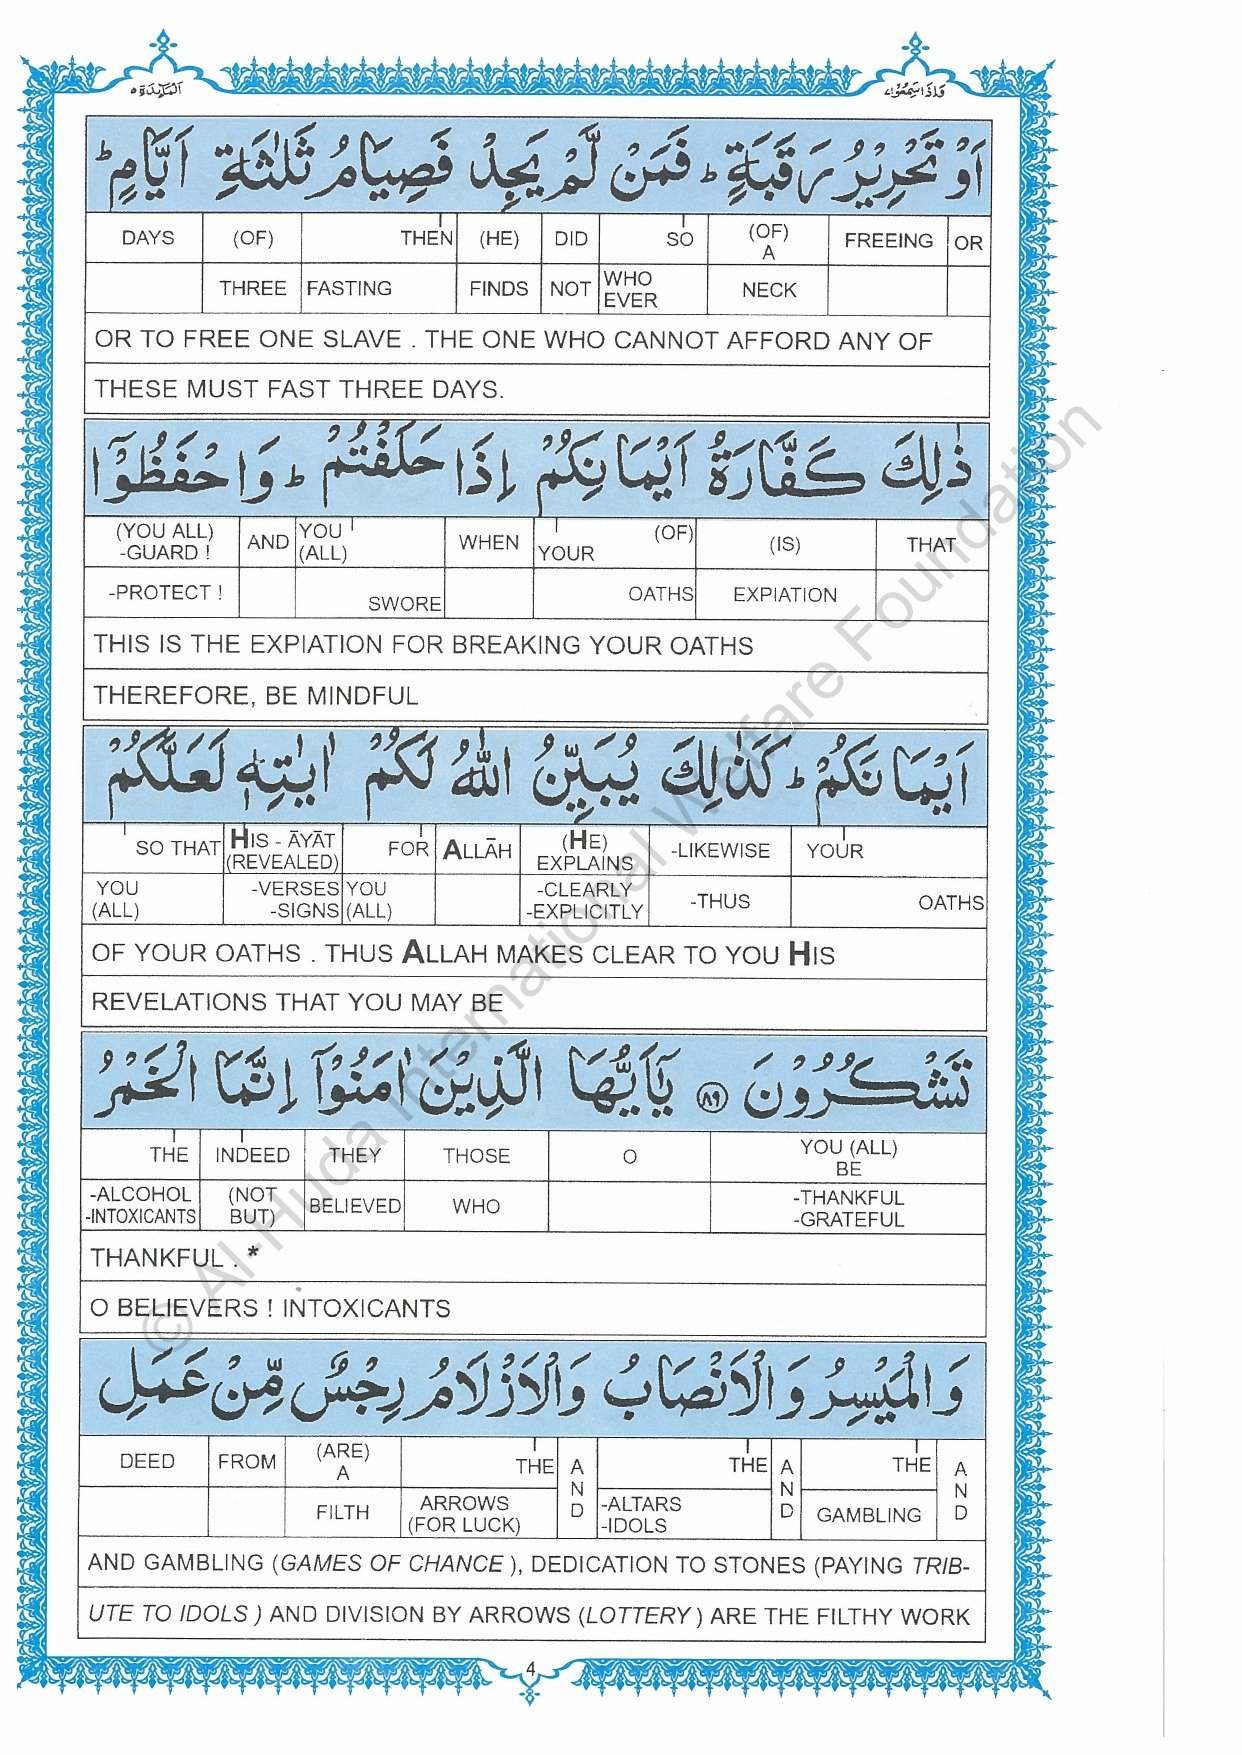 المآئدة ٥
واذا سمعوا ٧
اَوْ تَحْرِيْرُ رَقَبَةٍ ؕ فَمَنْ لَّمْ يَجِدْ فَصِيَامُ ثَلٰثَةِ اَيَّامٍ ؕ
DAYS (OF) THEN (HE) DID SO (OF) A FREEING OR
THREE FASTING FINDS NOT WHO EVER NECK
OR TO FREE ONE SLAVE . THE ONE WHO CANNOT AFFORD ANY OF
THESE MUST FAST THREE DAYS.
ذٰلِكَ كَفَّارَةُ اَيْمَانِكُمْ اِذَا حَلَفْتُمْ ؕ وَاحْفَظُوْۤا
(YOU ALL) -GUARD ! AND YOU (ALL) WHEN YOUR (OF) (IS) THAT
-PROTECT ! SWORE OATHS EXPIATION
THIS IS THE EXPIATION FOR BREAKING YOUR OATHS
THEREFORE, BE MINDFUL
اَيْمَانَكُمْ ؕ كَذٰلِكَ يُبَيِّنُ اللّٰهُ لَكُمْ اٰيٰتِهٖ لَعَلَّكُمْ
SO THAT HIS - ĀYĀT (REVEALED) FOR ALLĀH (HE) EXPLAINS -LIKEWISE YOUR
YOU (ALL) -VERSES -SIGNS YOU (ALL) -CLEARLY -EXPLICITLY -THUS OATHS
OF YOUR OATHS . THUS ALLAH MAKES CLEAR TO YOU HIS
REVELATIONS THAT YOU MAY BE
تَشْكُرُوْنَ ﴿۸۹﴾ يٰۤاَيُّهَا الَّذِيْنَ اٰمَنُوْۤا اِنَّمَا الْخَمْرُ
THE INDEED THEY THOSE O YOU (ALL) BE
-ALCOHOL -INTOXICANTS (NOT BUT) BELIEVED WHO -THANKFUL -GRATEFUL
THANKFUL . *
O BELIEVERS ! INTOXICANTS
وَالْمَيْسِرُ وَالْاَنْصَابُ وَالْاَزْلَامُ رِجْسٌ مِّنْ عَمَلِ
DEED FROM (ARE) A THE AND THE AND THE AND
FILTH ARROWS (FOR LUCK) -ALTARS -IDOLS GAMBLING
AND GAMBLING (GAMES OF CHANCE ), DEDICATION TO STONES (PAYING TRIB-
UTE TO IDOLS ) AND DIVISION BY ARROWS (LOTTERY ) ARE THE FILTHY WORK
4
© Al-Huda International Welfare Foundation